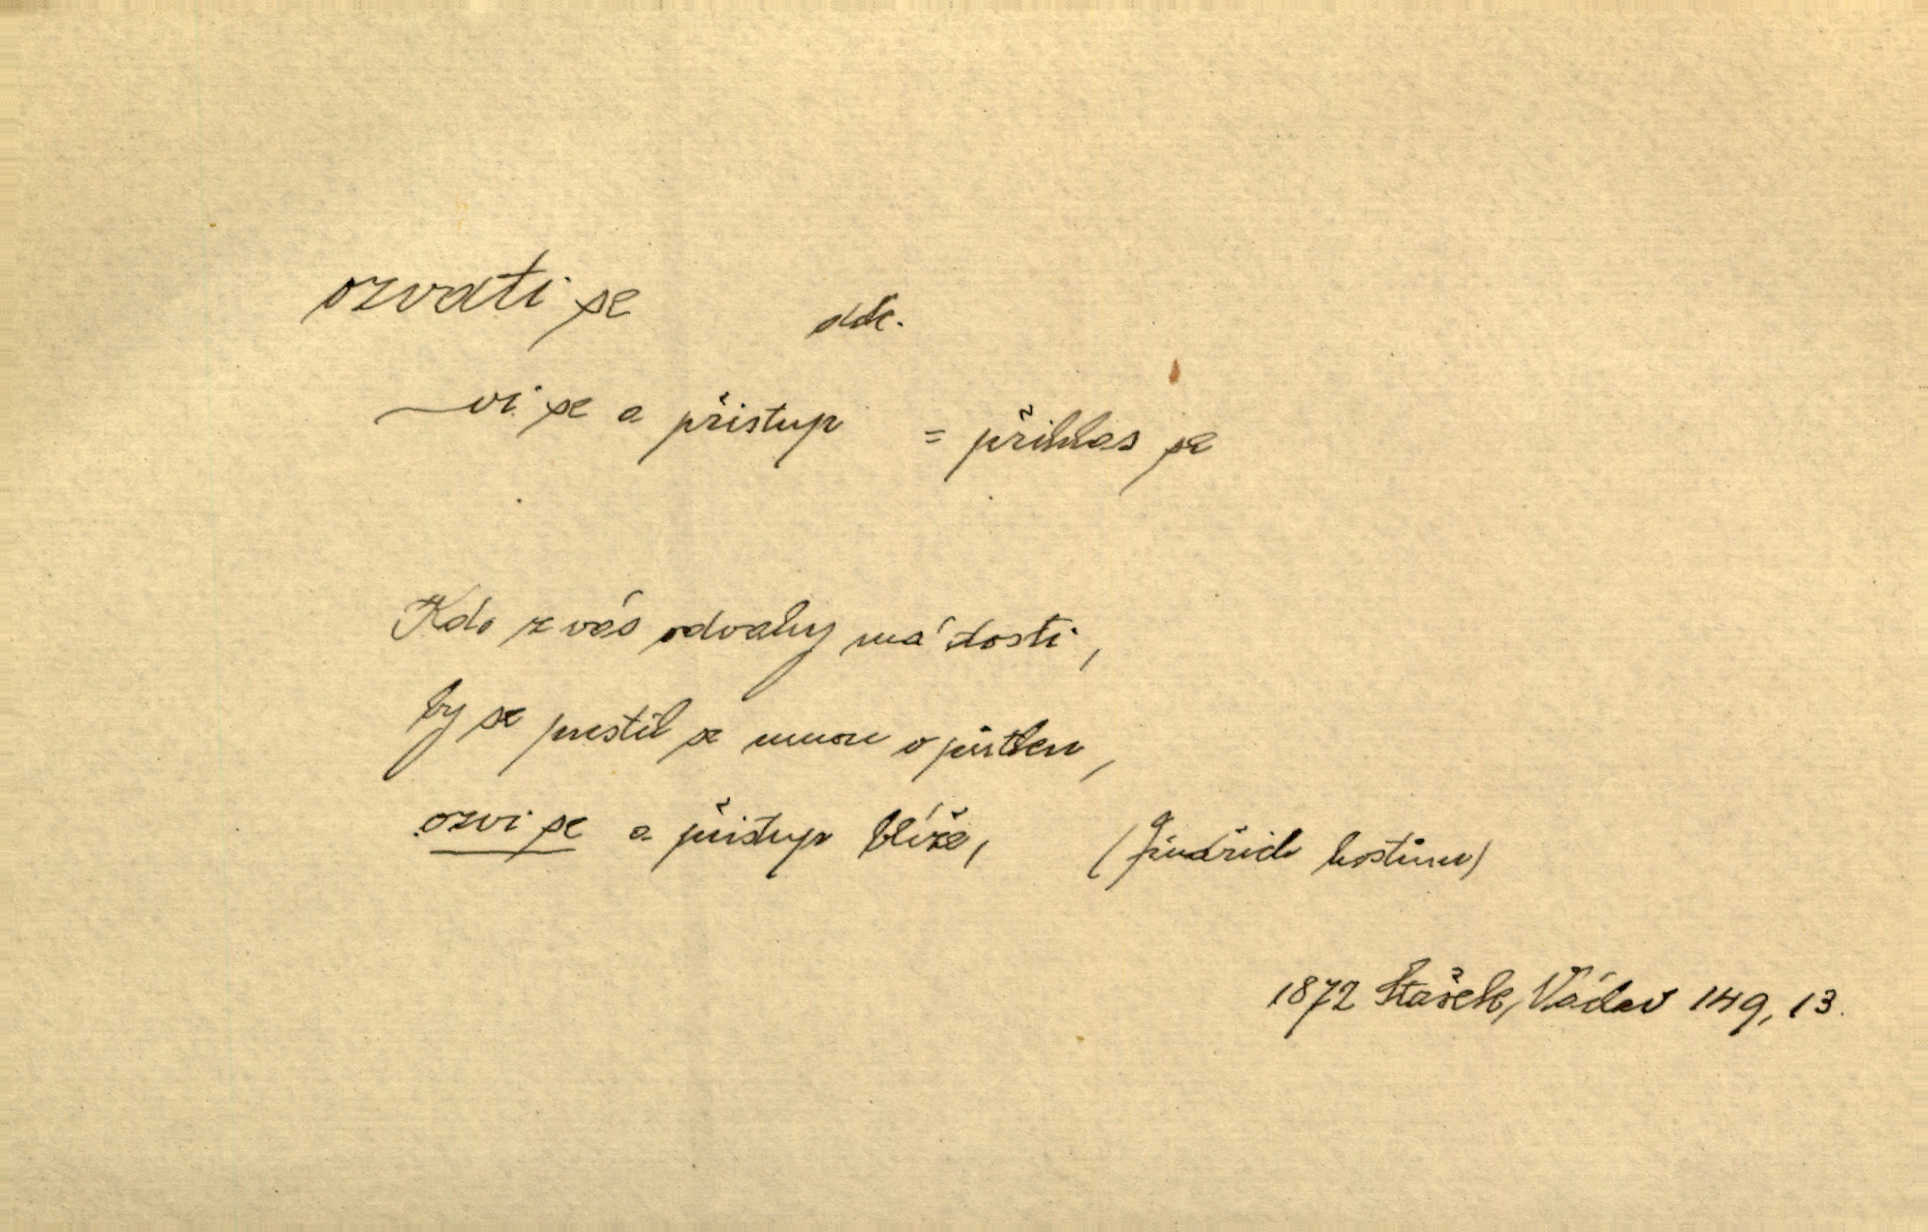 ozvati se dok.
—vi se a přistup = přihlas se
Kdo z vás odvahy má dosti,
by se pustil se mnou v půtku,
ozvi se a přistup blíže, (Jindřich hostinu)
1872 Stašek, Václav 149, 13.